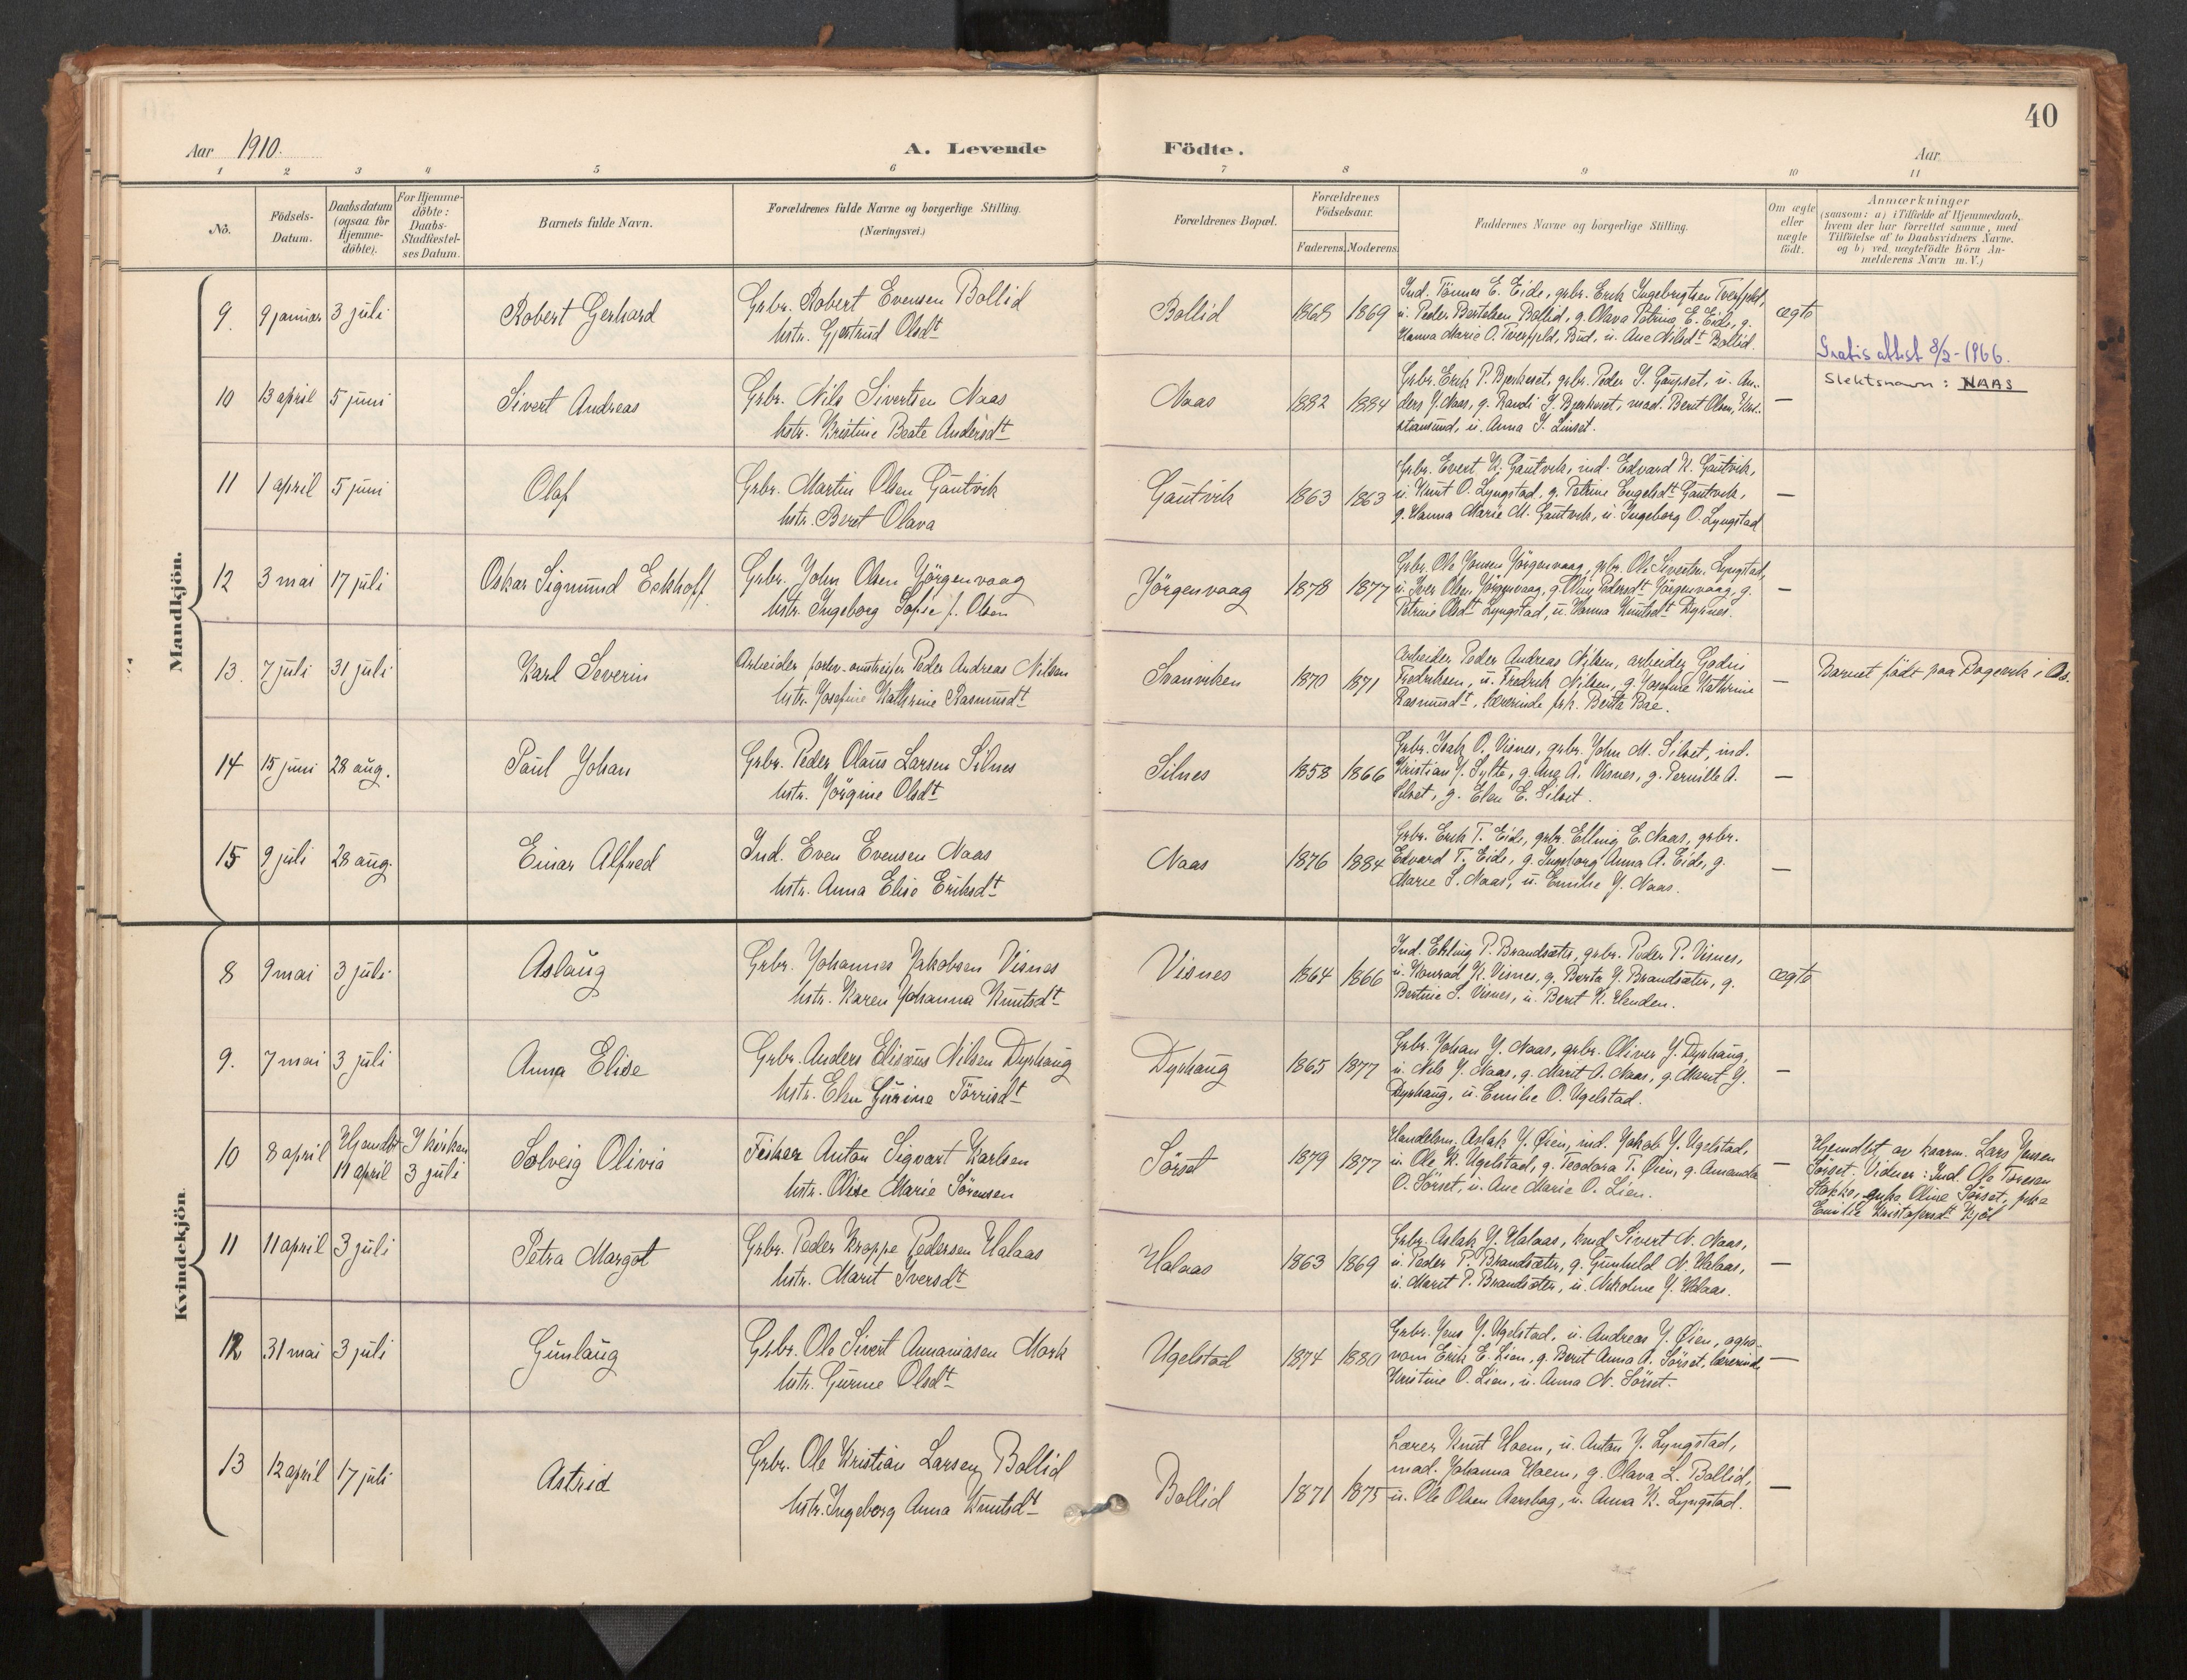 40
Aar 1910.
A. Levende Födte.
Aar
1 2 3 4 5 6 7 8 9 10 11
Nô.
Födsels-
Datum.
Daabsdatum
(ogsaa for
Hjemme-
döbte).
For Hjemme-
döbte:
Daabs-
Stadfæstel-
ses Datum.
Barnets fulde Navn.
Forældrenes fulde Navne og borgerlige Stilling.
(Næringsvei.)
Forældrenes Bopæl.
Forældrenes
Födselsaar.
Faderens. Moderens.
Faddernes Navne og borgerlige Stilling.
Om ægte
eller
uægte
födt.
Anmærkninger
(saasom: a) i Tilfælde af Hjemmedaab,
hvem der har forrettet samme, med
Tilföielse af to Daabsvidners Navne.
og b) ved uægtefödte Börn An-
melderens Navn m. V.)
Mandkjön.
9. 9 januar 3 juli
Robert Gerhard
Grbr. Robert Evensen Bollid
hstr. Gjertrud Olsdt
Bollid
1868 1869
Ind. Tönnes E. Eide, grbr. Erik Ingebrigtsen Tverfjeld,
u. Peder Bertelsen Bollid, g. Olava Petrine E. Eide, g.
Hanna Marie O. Tverfjeld, Bud, u. Ane Nilsdt Bollid.
ægte
Gratis attest 8/2-1966.
10 13 april 5 juni
Sivert Andreas
Grbr. Nils Sivertsen Naas
hstr. Kristine Beate Andersdt
Naas
1882 1884
Grbr. Erik P. Bjerkeset, grbr. Peder I. Gaupset, u. An-
ders Y. Naas, g. Randi I. Bjerkeset, mad. Berit Olsen, Kri-
stiansund, u. Anna I. Linset.
—
Slektsnavn: NAAS
11 1 april 5 juni
Olaf
Grbr. Martin Olsen Gautvik
hstr. Beret Olava
Gautvik
1863 1863
Grbr. Evert K. Gautvik, ind. Edvard K. Gautvik,
u. Knut O. Lyngstad, g. Petrine Engelsdt Gautvik,
g. Hanna Marie M. Gautvik, u. Ingeborg O. Lyngstad
—
12 3 mai 17 juli
Oskar Sigmund Eckhoff
Grbr. John Olsen Jörgenvaag
hstr. Ingeborg Sofie f. Olsen
Jörgenvaag
1878 1877
Grbr. Ole Jonsen Jörgenvaag, grbr. Ole Sivertsen Lyngstad,
u. Iver Olsen Jörgenvaag, g. Oline Pedersdt Jörgenvaag, g.
Petrine Olsdt Lyngstad, u. Hanna Knutsdt Dyrnes.
—
13. 7 juli 31 juli
Karl Severin
Arbeider, forhv. omstreifer Peder Andreas Nilsen
hstr. Josefine Kathrine Rasmusdt
Svanviken
1870 1871
Arbeider Peder Andreas Nilsen, arbeider Godin
Fredriksen, u. Fredrik Nilsen, g. Josefine Kathrine
Rasmusdt, lærerinde frk. Berta Bae.
—
Barnet födt paa Bogevik i
14 15 juni 28 aug.
Paul Johan
Grbr. Peder Olaus Larsen Silnes
hstr. Jörgine Olsdt
Silnes
1858 1866
Grbr. Isak O. Visnes, grbr. John M. Silset, ind.
Kristian J. Sylte, g. Ane A. Visnes, g. Pernille A.
Silset, g. Elen E. Silset.
—
15 9 juli 28 aug.
Einar Alfred
Ind. Even Evensen Naas
hstr. Anna Elise Eriksdt
Naas
1876 1884
Grbr. Erik T. Eide, grbr. Elling E. Naas, grbr.
Edvard T. Eide, g. Ingeborg Anna A. Eide, g.
Marie S. Naas, u. Emilie J. Naas.
—
Kvindekjön.
8 9 mai 3 juli
Aslaug
Grbr. Johannes Jakobsen Visnes
hstr. Karen Johanna Knutsdt
Visnes
1864 1866
Ind. Elling P. Brandsæter, grbr. Peder P. Visnes,
u. Konrad K. Visnes, g. Berta J. Brandsæter, g.
Bertine S. Visnes, u. Berit K. Henden.
ægte
9. 7 mai 3 juli
Anna Elise
Grbr. Anders Elisæus Nilsen Dyrhaug
hstr. Elen Gurine Törrisdt
Dyrhaug
1865 1877
Grbr. Johan J. Naas, grbr. Oliver J. Dyrhaug,
u. Nils J. Naas, g. Marit A. Naas, g. Marit J.
Dyrhaug, u. Emilie O. Ugelstad.
—
10 8 april Hjemdbt 11 april I kirken 3 juli
Solveig Olivia
Fisker Anton Sigvart Karlsen
hstr. Olise Marie Sörensen
Sörset
1879 1877
Handelsm. Aslak J. Øien, ind. Jakob J. Ugelstad,
u. Ole K. Ugelstad, g. Teodora T. Øien, g. Amanda
O. Sörset, u. Ane Marie O. Lien.
—
Hjemdbt av kaarm. Lars Jensen
Sörset. Vidner: Ind. Ole Toresen
Stokke, Oline Sörset,
Emilie Kristofersdt Kjöl
11 11 april 3 juli
Petra Margot
Grbr. Peder Kroppe Pedersen Halaas
hstr. Marit Iversdt
Halaas
1863 1869
Grbr. Aslak J. Halaas, Sivert N. Naas,
u. Peder P. Brandsæter, g. Gunhild N. Halaas,
u. Marit P. Brandsæter, u. Nikoline J. Halaas.
—
12 31 mai 3 juli
Gunlaug
Grbr. Ole Sivert Annaniasen Mork
hstr. Gurine Olsdt
Ugelstad
1874 1880
Grbr. Jens J. Ugelstad, u. Andreas J. Øien, agro-
nom Erik E. Lien, g. Berit Anna A. Sörset, lærerinde
Kristine O. Lien, u. Anna N. Sörset.
—
13 12 april 17 juli
Astrid
Grbr. Ole Kristian Larsen Bollid
hstr. Ingeborg Anna Knutsdt
Bollid
1871 1875
Lærer Knut Haem, u. Anton J. Lyngstad,
mad. Johanna Haem, g. Olava L. Bollid,
u. Ole Olsen Aarsbog, u. Anna K. Lyngstad.
—